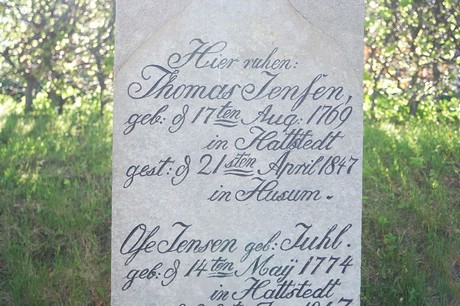 Hier ruhen:
Thomas Jensen,
geb: d 17ten Aug: 1769
in Hattstedt
gest: d 21sten April 1847
in Husum.
Ose Jensen geb: Juhl.
geb: d 14ten Maÿ 1774
in Hattstedt